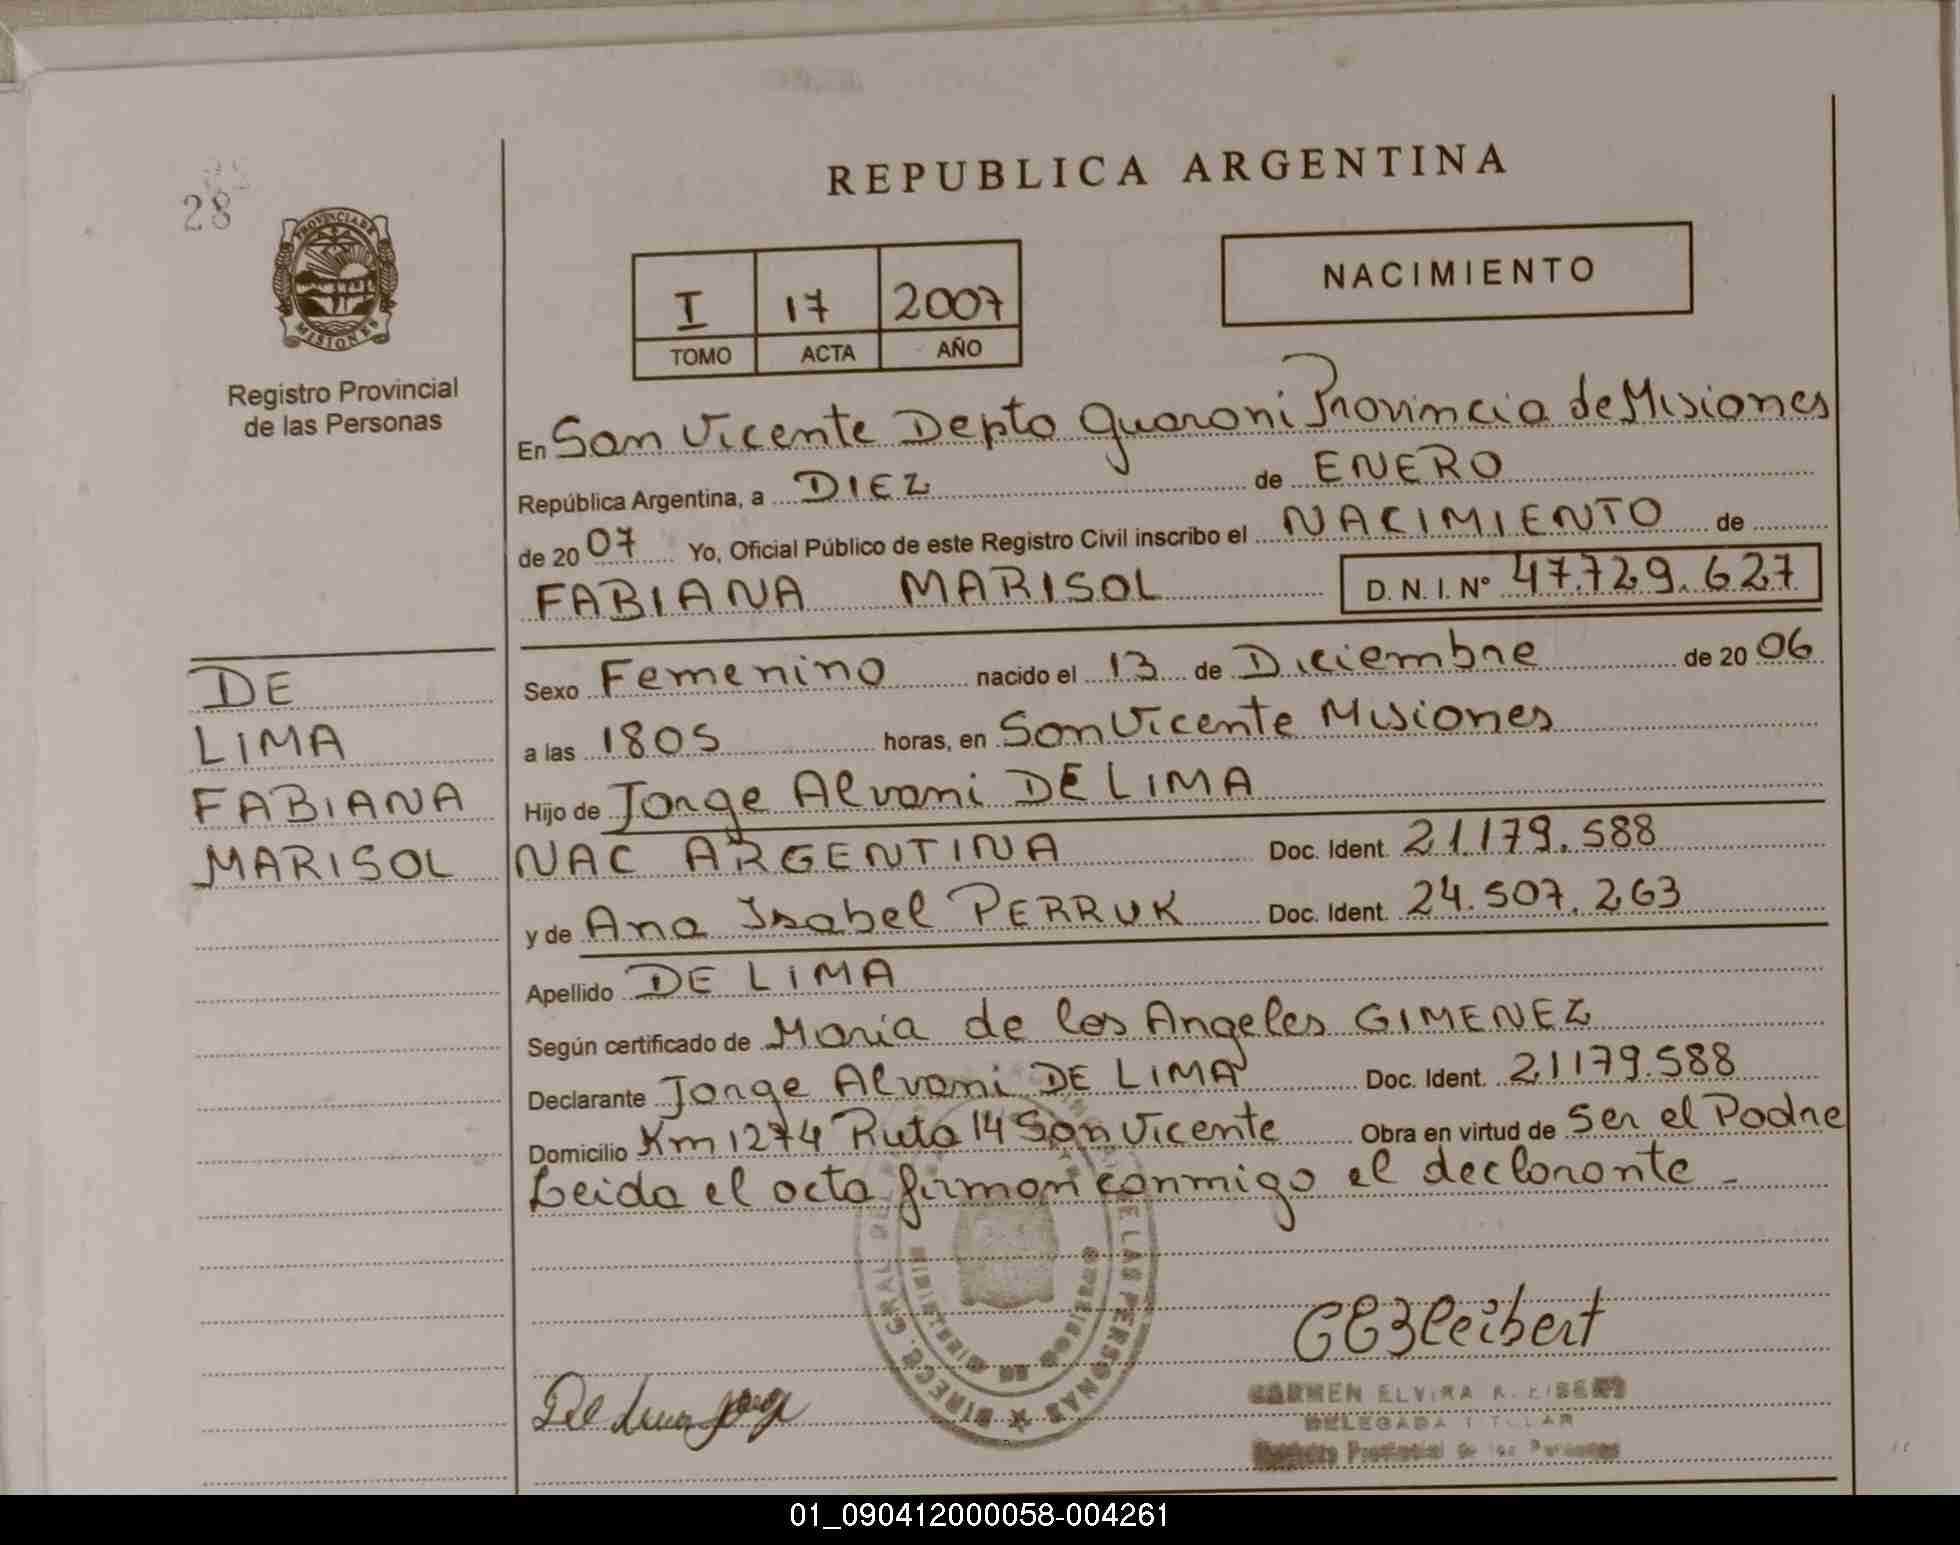 28
PROVINCIA DE
MISIONES
Registro Provincial
de las Personas
REPUBLICA ARGENTINA
I 17 2007
TOMO ACTA AÑO
NACIMIENTO
En San Vicente Depto Guaraní Provincia de Misiones
República Argentina, a DIEZ de ENERO
de 2007 Yo, Oficial Público de este Registro Civil inscribo el NACIMIENTO de
FABIANA MARISOL D. N. I. Nº 47.729.627
DE
LIMA
FABIANA
MARISOL
Sexo Femenino nacido el 13 de Diciembre de 2006
a las 1805 horas, en San Vicente Misiones
Hijo de Jorge Alvani DE LIMA
NAC ARGENTINA Doc. Ident. 21.179.588
y de Ana Isabel PERRUK Doc. Ident. 24.507.263
Apellido DE LIMA
Según certificado de Maria de los Angeles GIMENEZ
Declarante Jorge Alvani DE LIMA Doc. Ident. 21179.588
Domicilio Km 1274 Ruta 14 San Vicente Obra en virtud de Ser el Padre
Leida el acta firman conmigo el declarante -
DE LAS PERSONAS ★ DIREC. GRAL DE
MISIONES
CARMEN ELVIRA
DELEGADA TITULAR
Provincial de las Personas
De Lima Jorge
01_090412000058-004261